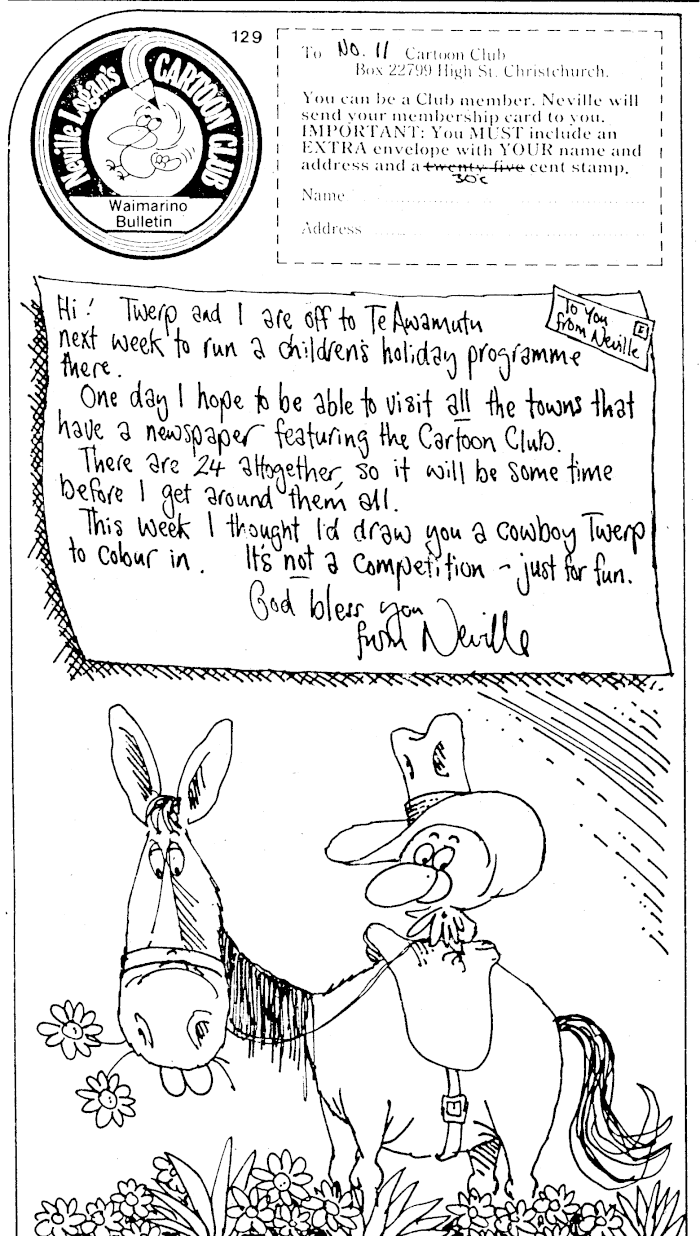 129
Neville Logan's CARTOON CLUB
Waimarino
Bulletin
To No. 11 Cartoon Club
Box 22799 High St. Christchurch.
You can be a Club member. Neville will
send your membership card to you.
IMPORTANT: You MUST include an
EXTRA envelope with YOUR name and
address and a twenty five cent stamp.
30c
Name
Address
To You
from Neville
Hi! Twerp and I are off to Te Awamutu
next week to run a children's holiday programme
there.
One day I hope to be able to visit all the towns that
have a newspaper featuring the Cartoon Club.
There are 24 altogether, so it will be some time
before I get around them all.
This week I thought I'd draw you a cowboy Twerp
to colour in. It's not a competition - just for fun.
God bless you
from Neville